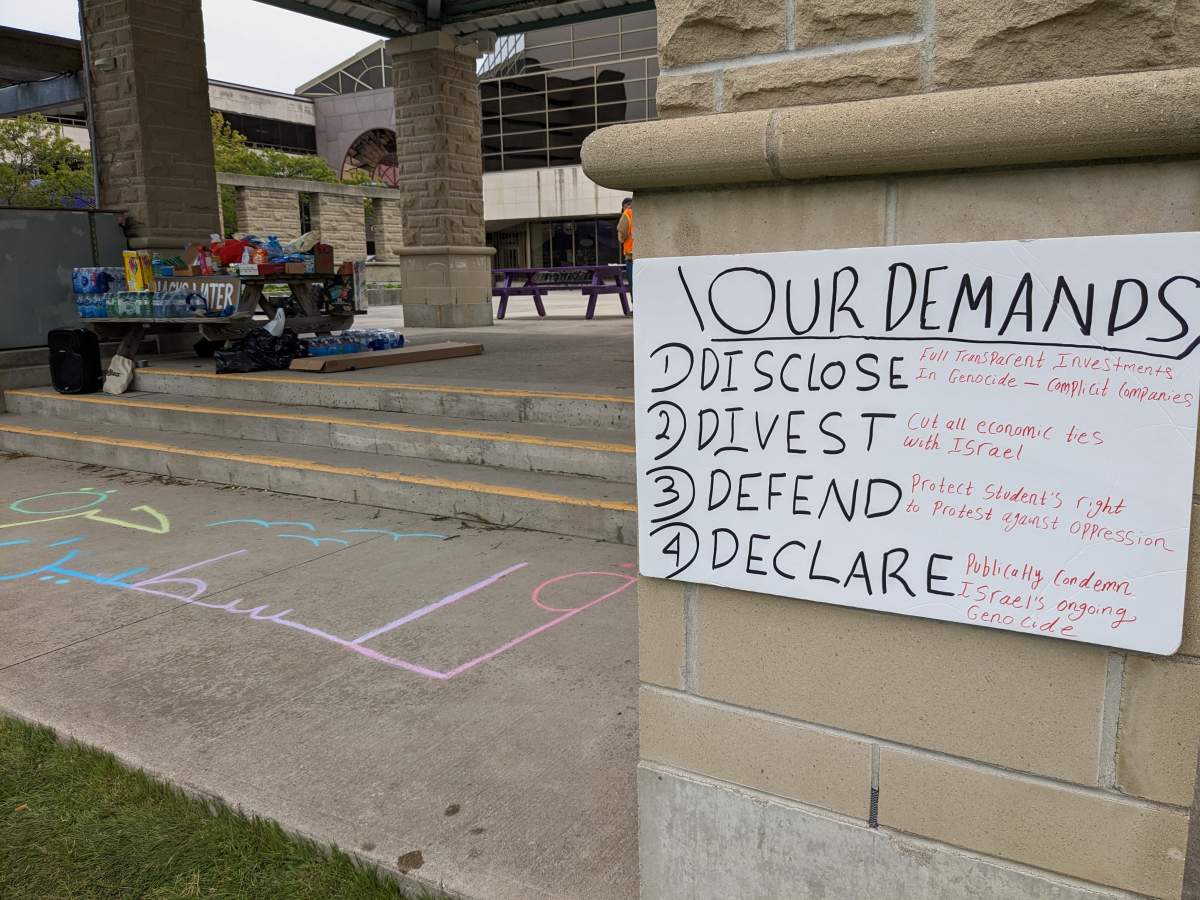 OUR DEMANDS
1) DISCLOSE Full Transparent Investments
In Genocide - complicit Companies
2) DIVEST Cut all economic ties
with Israel
3) DEFEND Protect Student's right
to Protest against oppression
4) DECLARE Publically Condemn
Israel's ongoing
Genocide
WATER
فلسطين